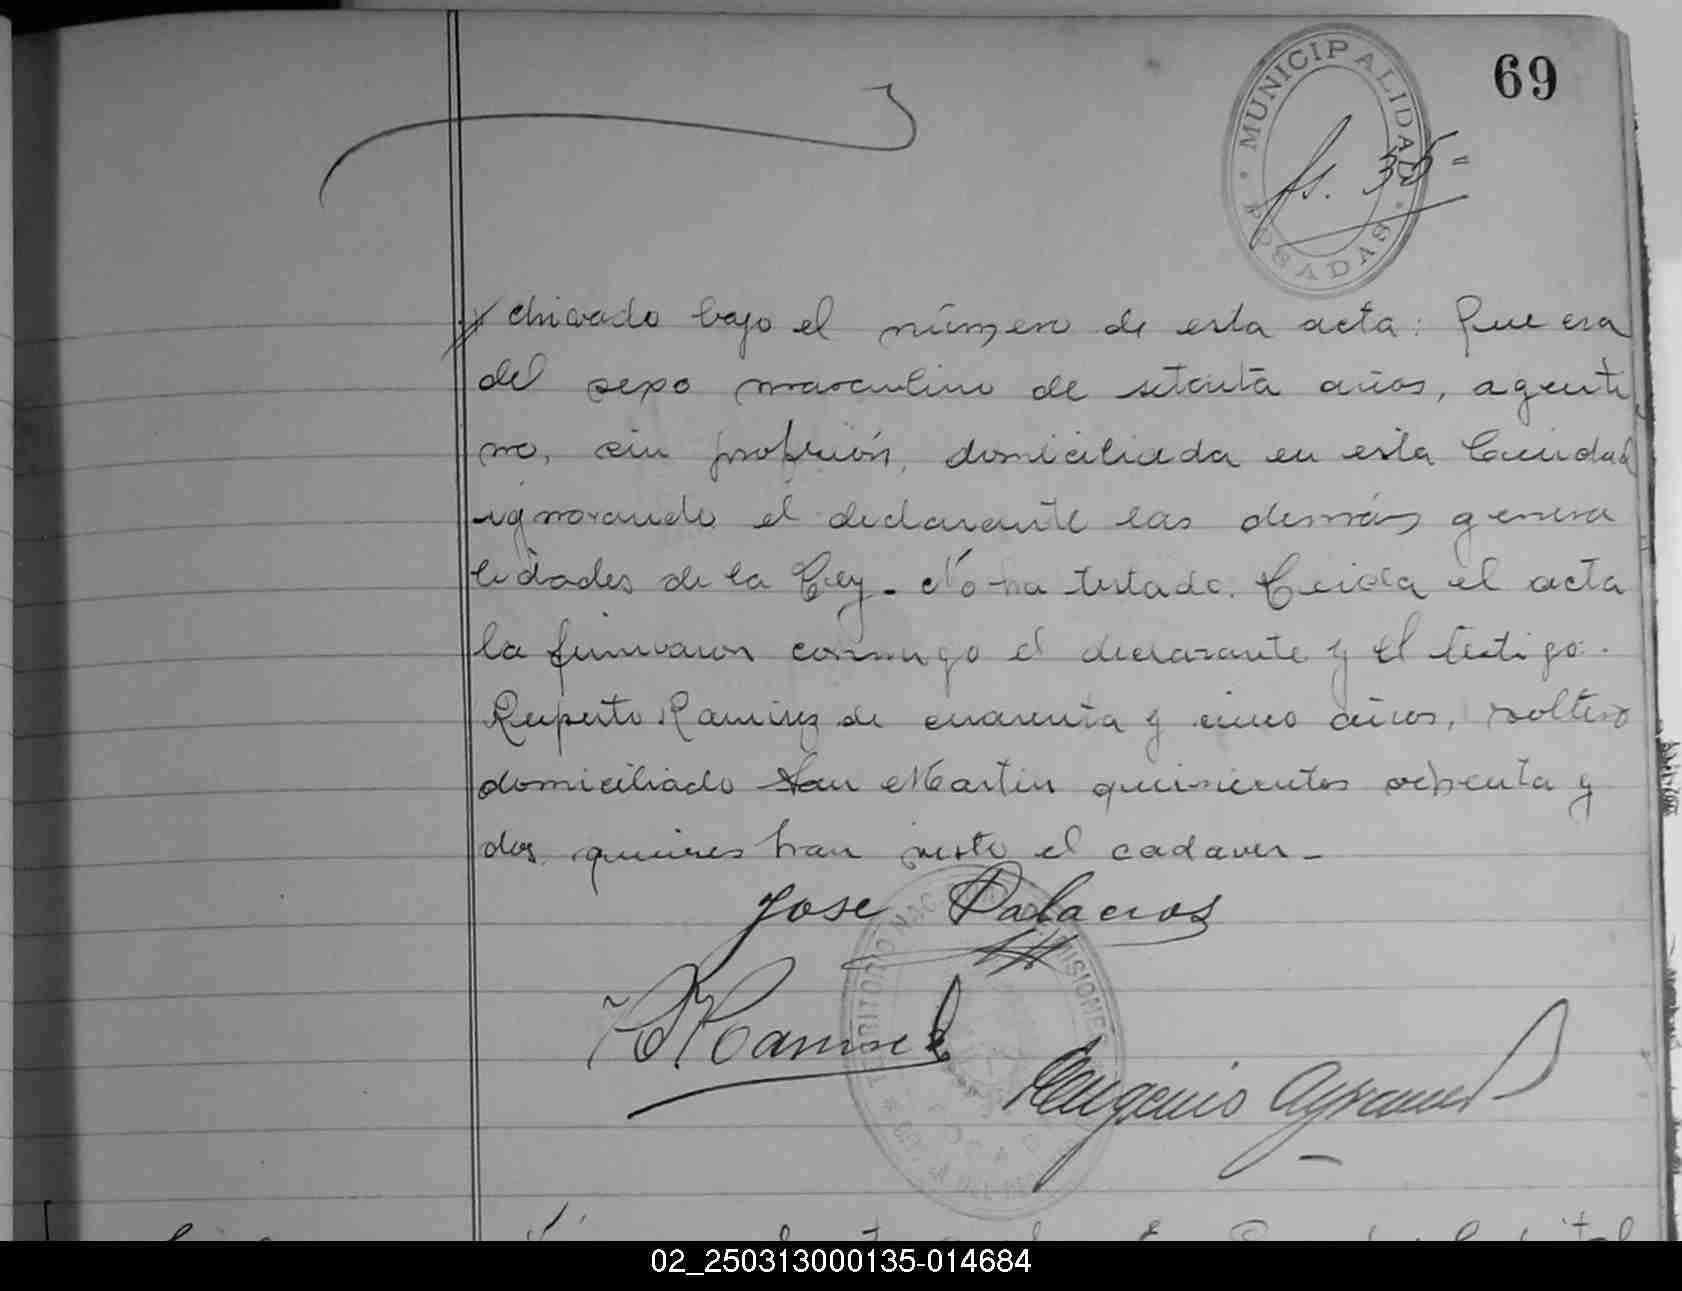 69
MUNICIPALIDAD
POSADAS
fs. 35=
chivado bajo el número de esta acta: Que era
del sexo masculino de setenta años, argenti
no, sin profesión, domiciliada en esta Ciudad
ignorando el declarante las demás genera
lidades de la Ley. No ha testado. Leida el acta
la firmaron conmigo el declarante y el testigo.
Ruperto Ramirez de cuarenta y cinco años, soltero
domiciliado San Martin quinientos ochenta y
dos, quienes han visto el cadaver_
Jose Palacios
TERRITORIO NAC MISIONES
R Ramirez
Eugenio
02_250313000135-014684